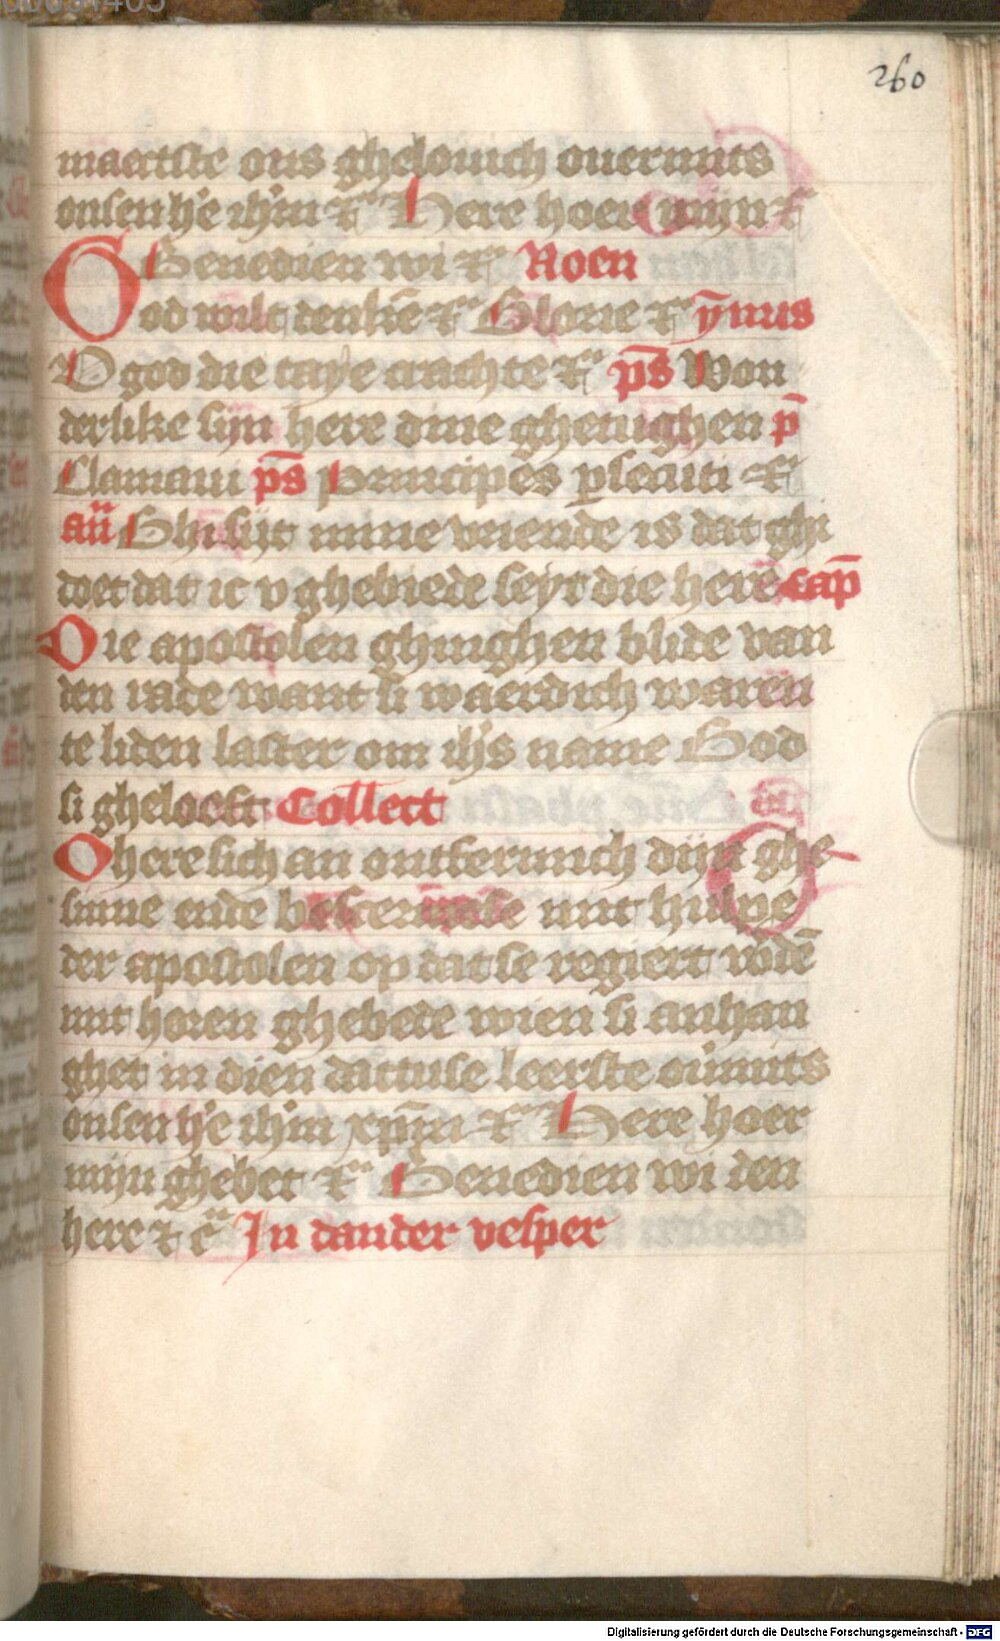 260
maectste ons ghelouich ouermits
onsen hʼe ihʼm ⁊cͣ Here hoer mijn ⁊
Benedien wi ⁊cͣ Noen
God wilt denkē ⁊cͣ Glorie ⁊cͣ ȳmus
O god die taye crachte ⁊cͣ ps̄ Won
derlike sijn here dine ghetughen p̄
Clamaui ps̄ Principes ꝑsecuti ⁊cͣ
an̄ Ghi sijt mine vriende is dat ghi
doet dat ic v ghebiede seyt die here cap̄
Die apostolen ghinghen blide van
den rade want si waerdich waren
te liden laster om ihʼs name God
si gheloeft Collect
O here sich an ontfermich dijn ghe
sinne ende bescermse mit hulpe
der apostolen op datse regiert wdē
mit horen ghebede wien si anhan
ghet in dien dattuse leerste oūmits
onsen hʼe ihʼm xpm̄ ⁊cͣ Here hoer
mijn ghebet ⁊cͣ Benedien wi den
here ⁊ cͣ In dander vesper
Digitalisierung gefördert durch die Deutsche Forschungsgemeinschaft - DFG